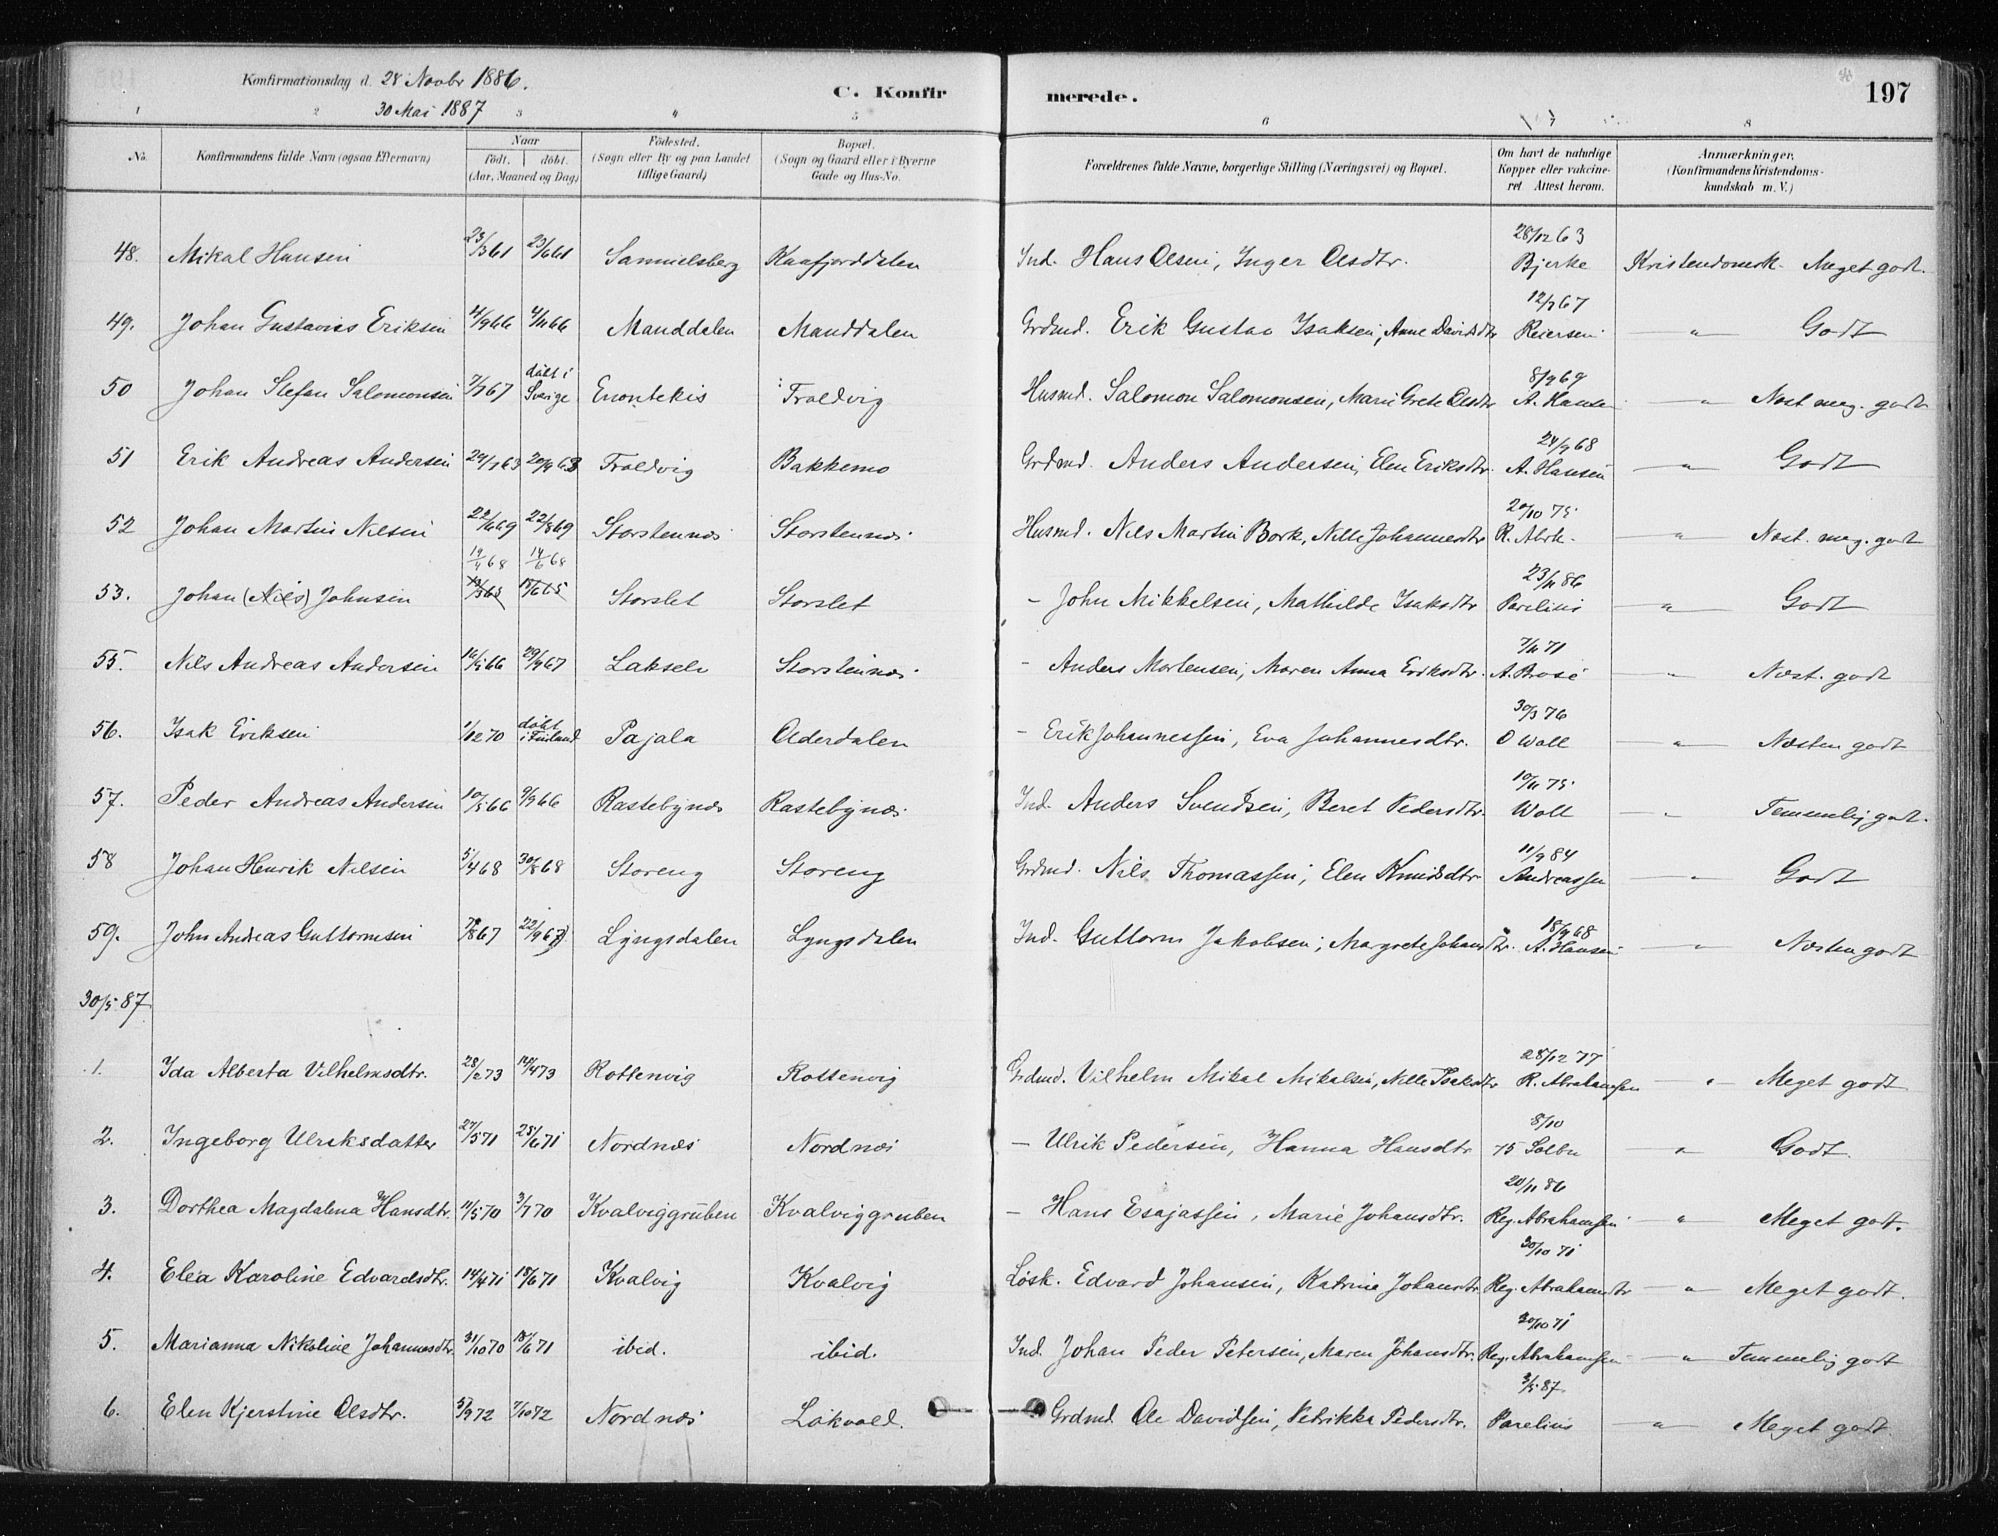 Konfirmationsdag d. 28 Novbr 1886.
30 Mai 1887
C. Konfirmerede.
197
1 2 3 4 5 6 7 8
No. Konfirmandens fulde Navn (ogsaa Efternavn) Naar født. døbt. (Aar, Maaned og Dag) Fødested. (Sogn eller By og paa Landet tillige Gaard) Bopæl. (Sogn og Gaard eller i Byerne Gade og Hus-No. Forældrenes fulde Navne, borgerlige Stilling (Næringsvei) og Bopæl. Om havt de naturlige Kopper eller vakcineret. Attest herom. Anmærkninger. (Konfirmandens Kristendomskundskab m. V.)
48. Mikal Hansen 23/3 61 23/6 61 Samuelsberg Kaafjorddalen Ind. Hans Olsen, Inger Olsdtr. 28/12 63 Bjerke Kristendomsk. Meget godt.
49. Johan Gustavus Eriksen 4/9 66 4/11 66 Manddalen Manddalen Grdmd. Erik Gustav Isaksen, Anne Davidsdtr 12/7 67 Reiersen " Godt
50 Johan Stefan Salomonsen 7/7 67 døbt i Sverige Enontekis Troldvig Husmd. Salomon Salomonsen, Marie Grete Olsdtr 8/9 69 A. Hansen " Næst meg. godt
51 Erik Andreas Andersen 24/7 63 20/9 63 Troldvig Bakkemo Grdmd. Anders Andersen, Elen Eriksdtr. 24/9 68 A. Hansen " Godt
52 Johan Martin Nilsen 22/6 69 22/8 69 Storstennæs Storstennæs Husmd. Nils Martin Bork, Nille Johannesdtr 20/10 75 R. Abrh. " Næst. meg. godt
19/4 68 14/6 68
53. Johan (Nils) Johnsen Storslet Storslet - John Mikkelsen, Mathilde Isaksdtr 23/11 86 Parelius " Godt
55. Nils Andreas Andersen 16/5 66 29/9 67 Lakselv Storstennæs - Anders Mortensen, Maren Anna Eriksdtr. 7/11 71 A. Brose " Næst. godt
56. Isak Eriksen 1/12 70 døbt i Finland Pajala Olderdalen - Erik Johannessen, Eva Johannesdtr. 30/3 76 O Woll " Næsten godt
57. Peder Andreas Andersen 10/5 66 9/9 66 Rastebynæs Rastebynæs Ind. Anders Svendsen, Beret Pedersdtr. 10/11 75 Woll " Temmelig godt.
58 Johan Henrik Nilsen 5/4 68 30/8 68 Storeng Storeng Grdmd. Nils Thomassen, Elen Knudsdtr 11/9 84 Andreassen " Godt
59. John Andreas Guttormsen 7/8 67 22/9 67 Lyngsdalen Lyngsdalen Ind. Guttorm Jakobsen, Margrete Johansdtr. 18/9 68 A. Hansen " Næsten godt
30/5 87
1. Ida Alberta Vilhelmsdtr. 28/2 73 14/4 73 Rottenvig Rottenvig Grdmd. Vilhelm Mikal Mikalsen, Nille Isaksdtr 28/12 77 R. Abrahamsen " Meget godt
2. Ingeborg Ulriksdatter 27/5 71 25/6 71 Nordnæs Nordnæs - Ulrik Pedersen, Hanna Hansdtr 8/10 75 Solbu " Godt.
3. Dorthea Magdalena Hansdtr. 11/5 70 3/7 70 Kvalviggruben Kvalviggruben - Hans Esajassen, Marie Johansdtr. 20/11 86 Reg. Abrahamsen " Meget godt.
4. Elea Karoline Edvardsdtr. 14/4 71 18/6 71 Kvalvig Kvalvig Løsk. Edvard Johansen, Katrine Johansdtr 30/10 71 Reg. Abrahamsdtr " Meget godt.
5. Marianna Nikoline Johannesdtr. 31/10 70 18/6 71 ibid. ibid. Ind. Johan Peder Petersen, Maren Johansdtr. 30/10 71 Reg. Abrahamsen " Temmelig godt
6. Elen Kjerstine Olsdtr. 5/9 72 7/10 72 Nordnæs Løkvold. Grdmd. Ole Davidsen, Petrikka Pedersdtr. 3/5 87. Parelius " Meget godt.